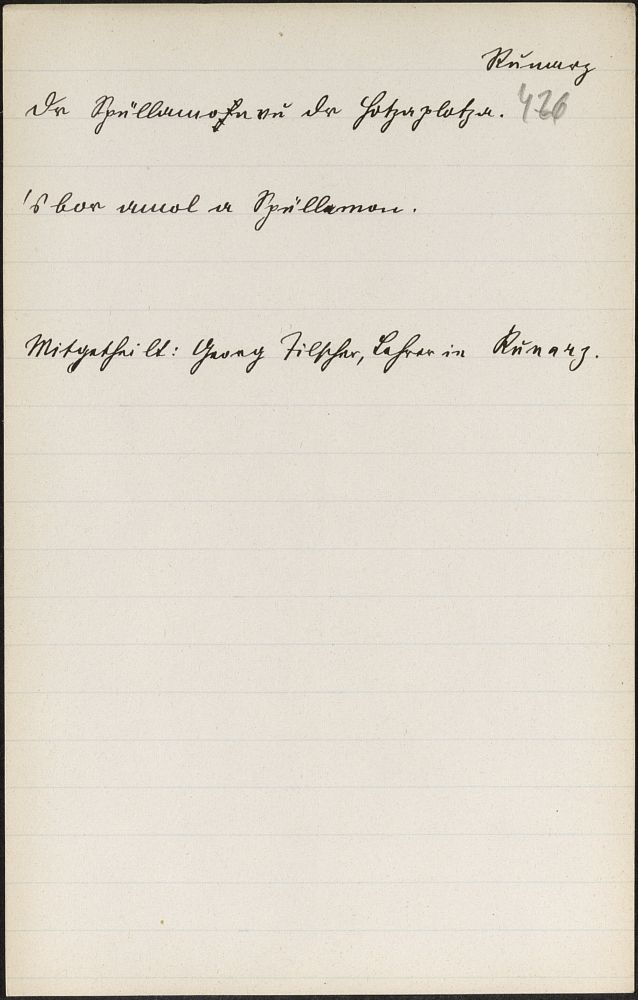 Runarz
Dr Spüllamon vu dr Hotzaplotza. 426
's bor amol a Spüllamon.
Mitgetheilt: Georg Tilscher, Lehrer in Runarz.